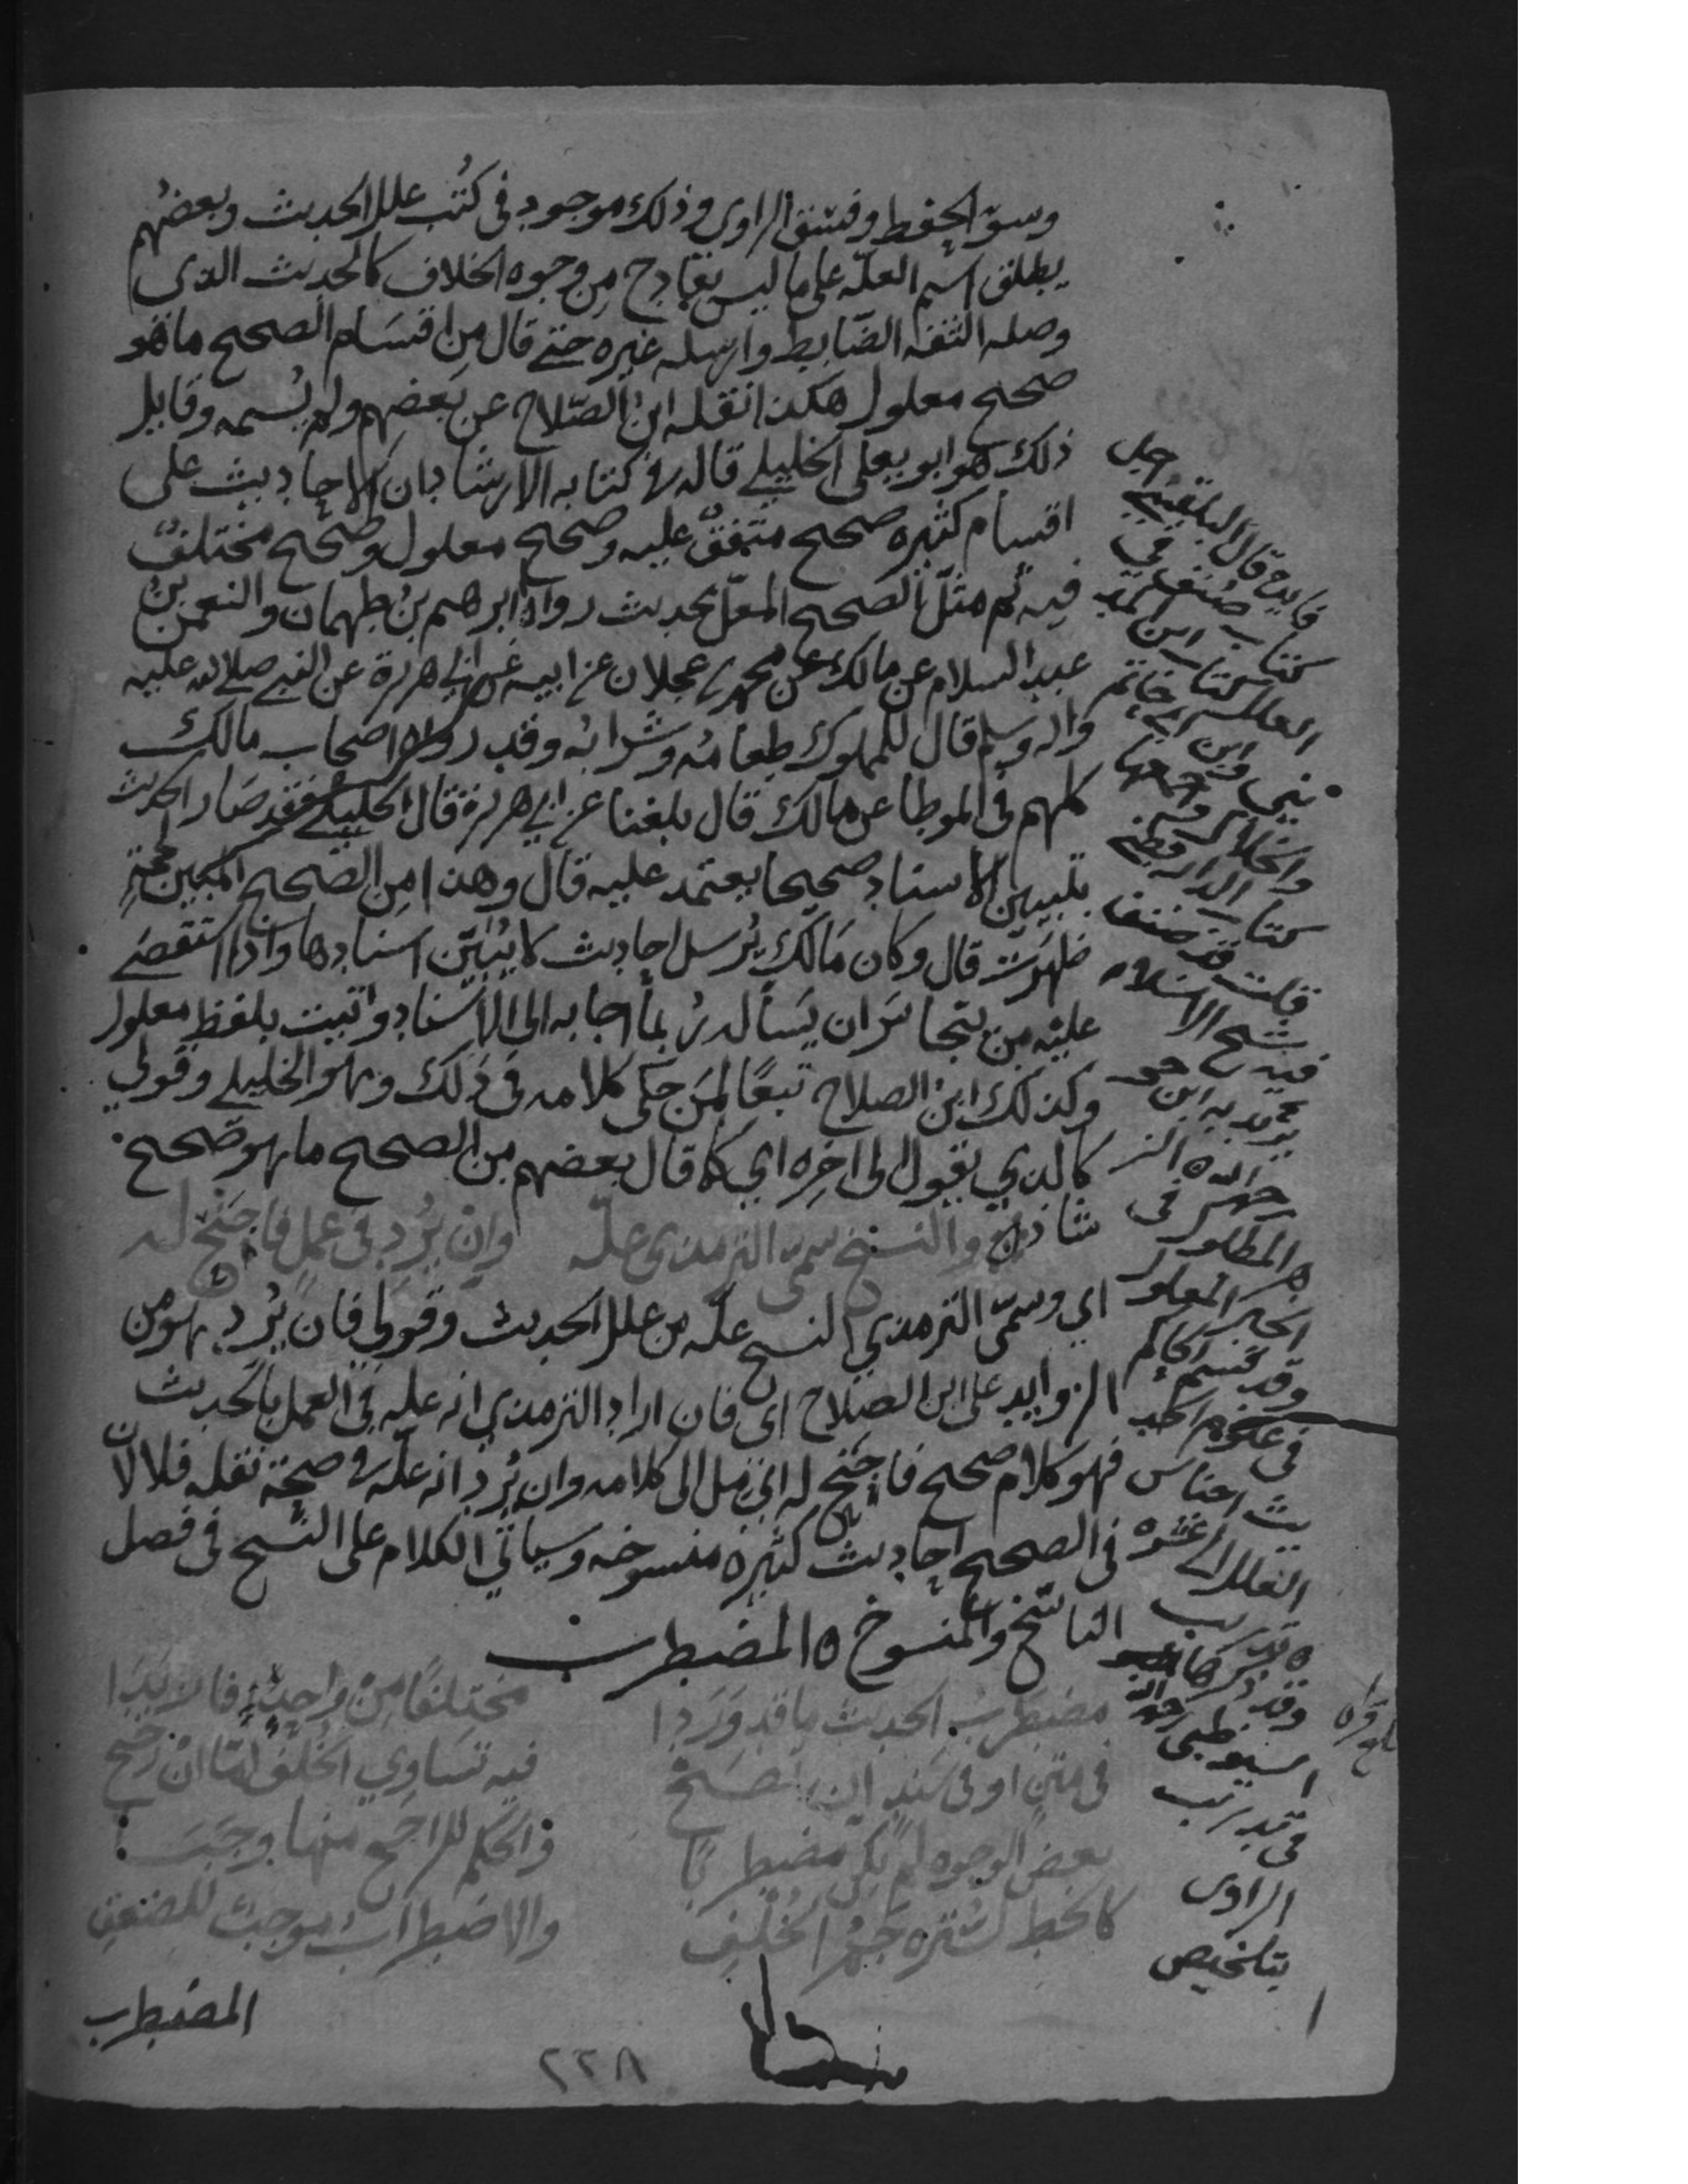 وسوء الحفظ وفسق الراوى وذلك موجود فى كتب علل الحديث وبعضهم
يطلق اسم العلة على ما ليس بقادح من وجوه الخلاف كالحديث الذى
وصله الثقة الضابط وارسله غيره حتى قال من اقسام الصحيح ما هو
صحيح معلول هكذا نقله ابن الصلاح عن بعضهم ولم يسمه وقايل
ذلك هو ابو يعلى الخليلي قاله فى كتابه الارشاد ان الاحاديث على
اقسام كثيرة صحيح متفق عليه وصحيح معلول وصحيح مختلف
فيه ثم مثل الصحيح المعل بحديث رواه ابرهيم بن طهمان والنعمن بن
عبد السلام عن مالك عن محمد بن عجلان عن ابيه عن ابي هريرة عن النبي صلى الله عليه
واله وسلم قال للمملوك طعامه وشرابه وقد رواه اصحاب مالك
كلهم فى الموطا عن مالك قال بلغنا عن ابي هريرة قال الخليلي فقد صار الحديث
بتبيين الاسناد صحيحا يعتمد عليه قال وهذا من الصحيح المبين بحجة
ظهرت قال وكان مالك يرسل احاديث لا يبين اسنادها واذا استقصى
عليه من يتجاسر ان يساله ربما اجابه الى الاسناد واتيت بلفظ معلول
وكذلك ابن الصلاح تبعا لمن حكى كلامه فى ذلك وهو الخليلي وقولي
كالذي يقول الى اخره اي كما قال بعضهم من الصحيح ما هو صحيح
شاذ والنسخ سمى الترمذى علة وان يرد فى عمل فاجنح له
اي وسمى الترمذي النسخ علة من علل الحديث وقولي فان يرد هو من
الزوايد على ابن الصلاح اى فان اراد الترمذي انه علة فى العمل بالحديث
فهو كلام صحيح فاجنح له اى مل الى كلامه وان يرد انه علة فى صحة نقله فلا لان
فى الصحيح احاديث كثيرة منسوخة وسياتي الكلام على النسخ فى فصل
الناسخ والمنسوخ ه المضطرب
مضطرب الحديث ما قد وردا مختلفا من واحد فازيدا
فى متن او فى سند ان اتضح فيه تساوي الخلف اما ان رجح
بعض الوجوه لم يكن مضطربا والحكم للراجح منها وجبا
كالخط للسترة جم الخلف والاضطراب موجب للضعف
المضطرب
٢٢٨
فايدة قال البلقيني اجل
كتاب صنف في
العلل كتاب ابن المد
يني وابن ابي حاتم
والخلال واجمعها
كتاب الدارقطني
قلت قد صنف
فيه شيخ الاسلام
ابن حجر
رحمه الله الز
هر المطلول فى
الخبر المعلول
وقد قسم الحاكم
فى علوم الحد
يث اجناس
العلل الى عشرة
وقد ذكرها
السيوطي رحمه الله
فى تدريب
الراوى
بتلخيص